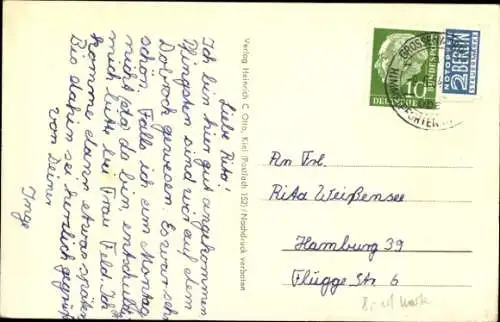 Liebe Rita!
Ich bin hier gut angekommen
Pfingsten sind wir auf dem
Dobrock gewesen. Es war sehr
schön. Falls ich am Montag
nicht da bin, entschuldige
mich bitte bei Frau Feld. Ich
komme dann etwas später
Bis dahin sei herzlich gegrüßt
von Deiner
Inge
Verlag Heinrich C. Otto, Kiel (Postfach 152) / Nachdruck verboten
DEUTSCHE
BUNDESPOST
10
NOTOPFER
2 BERLIN
STEUERMARKE
An Frl.
Rita Weißensee
Hamburg 39
Flügge Str 6